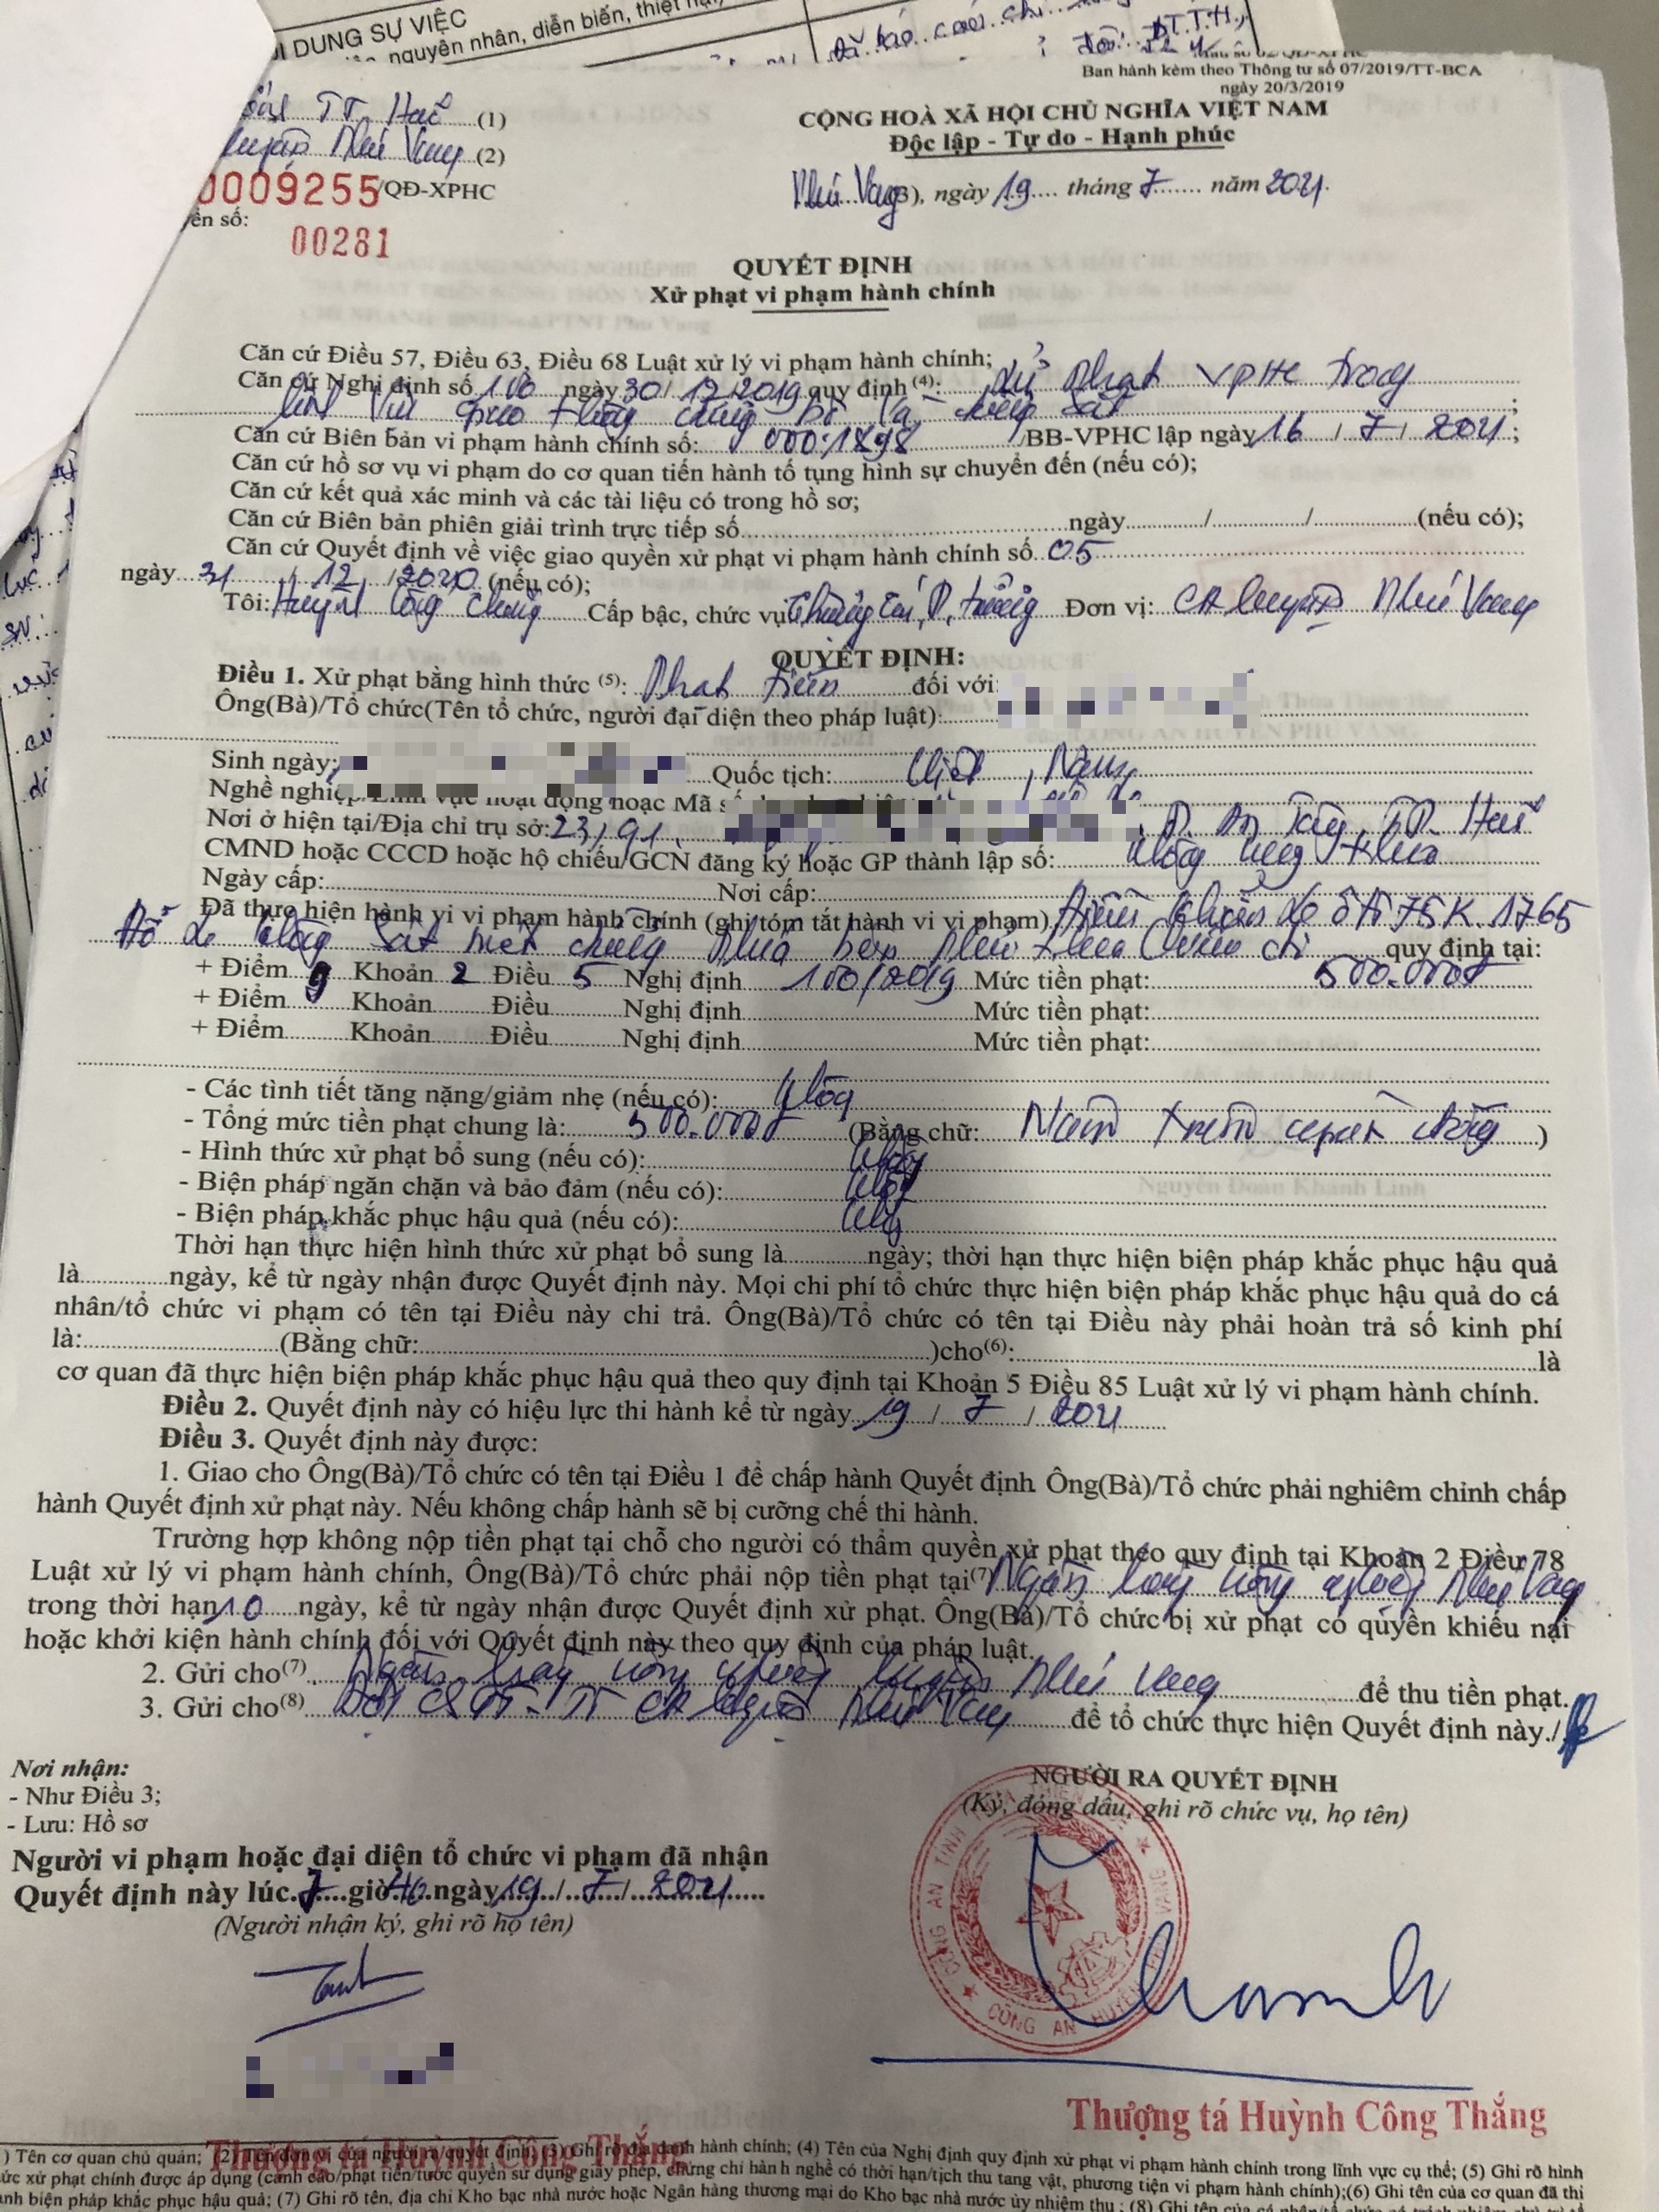 DUNG SỰ VIỆC
nguyên nhân, diễn biến, thiệt hại
Ban hành kèm theo Thông tư số 07/2019/TT-BCA
ngày 20/3/2019
TT Huế (1)
Phú Vang (2)
0009255/QĐ-XPHC
số:
00281
CỘNG HOÀ XÃ HỘI CHỦ NGHĨA VIỆT NAM
Độc lập - Tự do - Hạnh phúc
Phú Vang(3), ngày 19 tháng 7 năm 2021.
QUYẾT ĐỊNH
Xử phạt vi phạm hành chính
Căn cứ Điều 57, Điều 63, Điều 68 Luật xử lý vi phạm hành chính;
Căn cứ Nghị định số 100 ngày 30/12/2019 quy định (4): Xử phạt VPHC trong
lĩnh vực giao thông đường bộ và đường sắt ;
Căn cứ Biên bản vi phạm hành chính số: 0001898 /BB-VPHC lập ngày 16 / 7 / 2021 ;
Căn cứ hồ sơ vụ vi phạm do cơ quan tiến hành tố tụng hình sự chuyển đến (nếu có);
Căn cứ kết quả xác minh và các tài liệu có trong hồ sơ;
Căn cứ Biên bản phiên giải trình trực tiếp số ngày / / (nếu có);
Căn cứ Quyết định về việc giao quyền xử phạt vi phạm hành chính số 05
ngày 31 / 12 / 2020 (nếu có);
Tôi: Huỳnh Công Thắng Cấp bậc, chức vụ Thượng tá, P. trưởng Đơn vị: CA huyện Phú Vang
QUYẾT ĐỊNH:
Điều 1. Xử phạt bằng hình thức (5): Phạt tiền đối với:
Ông(Bà)/Tổ chức(Tên tổ chức, người đại diện theo pháp luật):
Sinh ngày: Quốc tịch: Việt Nam
Nghề nghiệp/Lĩnh vực hoạt động hoặc Mã số
Nơi ở hiện tại/Địa chỉ trụ sở: 23/91 P. An Tây, TP. Huế
CMND hoặc CCCD hoặc hộ chiếu/GCN đăng ký hoặc GP thành lập số:
Ngày cấp: Nơi cấp:
Đã thực hiện hành vi vi phạm hành chính (ghi tóm tắt hành vi vi phạm) Điều khiển xe ô tô 75K 1765
đỗ xe không sát mép đường phía bên phải theo chiều đi quy định tại:
+ Điểm g Khoản 2 Điều 5 Nghị định 100/2019 Mức tiền phạt: 500.000đ
+ Điểm Khoản Điều Nghị định Mức tiền phạt:
+ Điểm Khoản Điều Nghị định Mức tiền phạt:
- Các tình tiết tăng nặng/giảm nhẹ (nếu có): Không
- Tổng mức tiền phạt chung là: 500.000đ (Bằng chữ: Năm trăm nghìn đồng )
- Hình thức xử phạt bổ sung (nếu có): Không
- Biện pháp ngăn chặn và bảo đảm (nếu có): Không
- Biện pháp khắc phục hậu quả (nếu có): Không
Thời hạn thực hiện hình thức xử phạt bổ sung là ngày; thời hạn thực hiện biện pháp khắc phục hậu quả
là ngày, kể từ ngày nhận được Quyết định này. Mọi chi phí tổ chức thực hiện biện pháp khắc phục hậu quả do cá
nhân/tổ chức vi phạm có tên tại Điều này chi trả. Ông(Bà)/Tổ chức có tên tại Điều này phải hoàn trả số kinh phí
là: (Bằng chữ: )cho(6): là
cơ quan đã thực hiện biện pháp khắc phục hậu quả theo quy định tại Khoản 5 Điều 85 Luật xử lý vi phạm hành chính.
Điều 2. Quyết định này có hiệu lực thi hành kể từ ngày 19 / 7 / 2021
Điều 3. Quyết định này được:
1. Giao cho Ông(Bà)/Tổ chức có tên tại Điều 1 để chấp hành Quyết định. Ông(Bà)/Tổ chức phải nghiêm chỉnh chấp
hành Quyết định xử phạt này. Nếu không chấp hành sẽ bị cưỡng chế thi hành.
Trường hợp không nộp tiền phạt tại chỗ cho người có thẩm quyền xử phạt theo quy định tại Khoản 2 Điều 78
Luật xử lý vi phạm hành chính, Ông(Bà)/Tổ chức phải nộp tiền phạt tại(7) Ngân hàng nông nghiệp Phú Vang
trong thời hạn 10 ngày, kể từ ngày nhận được Quyết định xử phạt. Ông(Bà)/Tổ chức bị xử phạt có quyền khiếu nại
hoặc khởi kiện hành chính đối với Quyết định này theo quy định của pháp luật.
2. Gửi cho(7) Ngân hàng nông nghiệp huyện Phú Vang để thu tiền phạt.
3. Gửi cho(8) Đội CSGT-TT CA huyện Phú Vang để tổ chức thực hiện Quyết định này./.
Nơi nhận:
- Như Điều 3;
- Lưu: Hồ sơ
Người vi phạm hoặc đại diện tổ chức vi phạm đã nhận
Quyết định này lúc 7 giờ 40 ngày 19 / 7 / 2021
(Người nhận ký, ghi rõ họ tên)
NGƯỜI RA QUYẾT ĐỊNH
(Ký, đóng dấu, ghi rõ chức vụ, họ tên)
CÔNG AN TỈNH THỪA THIÊN HUẾ
CÔNG AN HUYỆN PHÚ VANG
Thượng tá Huỳnh Công Thắng
Thượng tá Huỳnh Công Thắng
) Tên cơ quan chủ quản; (2) Tên đơn vị của người ra quyết định; (3) Ghi rõ địa danh hành chính; (4) Tên của Nghị định quy định xử phạt vi phạm hành chính trong lĩnh vực cụ thể; (5) Ghi rõ hình
thức xử phạt chính được áp dụng (cảnh cáo/phạt tiền/tước quyền sử dụng giấy phép, chứng chỉ hành nghề có thời hạn/tịch thu tang vật, phương tiện vi phạm hành chính);(6) Ghi tên của cơ quan đã thi
hành biện pháp khắc phục hậu quả; (7) Ghi rõ tên, địa chỉ Kho bạc nhà nước hoặc Ngân hàng thương mại do Kho bạc nhà nước ủy nhiệm thu ; (8) Ghi tên của